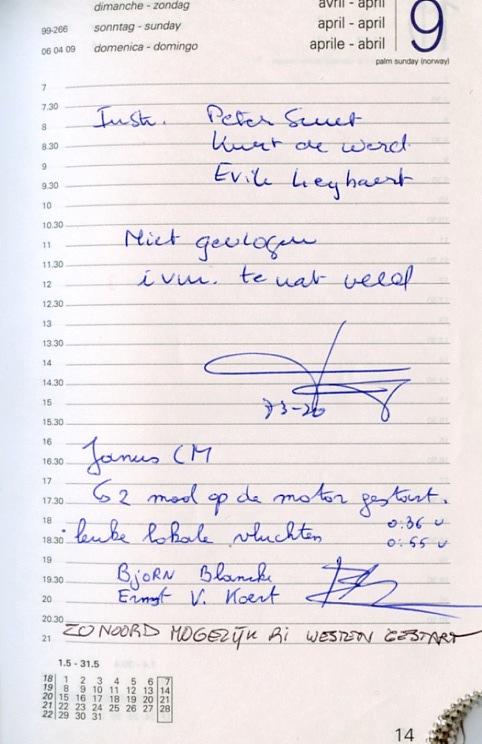 dimanche - zondag
avril - april
99-266 sonntag - sunday
april - april
06 04 09 domenica - domingo
aprile - abril
9
palm sunday (norway)
7
7.30
Instr. Peter Smet
8
8.30 Kurt de werd
9
9.30 Erik Leybaert
10
10.30
11 Niet gevlogen
11.30
12 i vm. te nat veld
12.30
13
13.30
14
14.30
15
15.30
16
16.30 Janus CM
17
17.30 2 maal op de motor gestart.
18 0:36 u
18.30 leuke lokale vluchten 0:55 u
19
19.30 BjORN Blancke
20 Ernst V. Koert
20.30
21 ZO NOORD MOGELIJK RI WESTEN GESTART
1.5 - 31.5
18 1 2 3 4 5 6 7
19 8 9 10 11 12 13 14
20 15 16 17 18 19 20 21
21 22 23 24 25 26 27 28
22 29 30 31
14